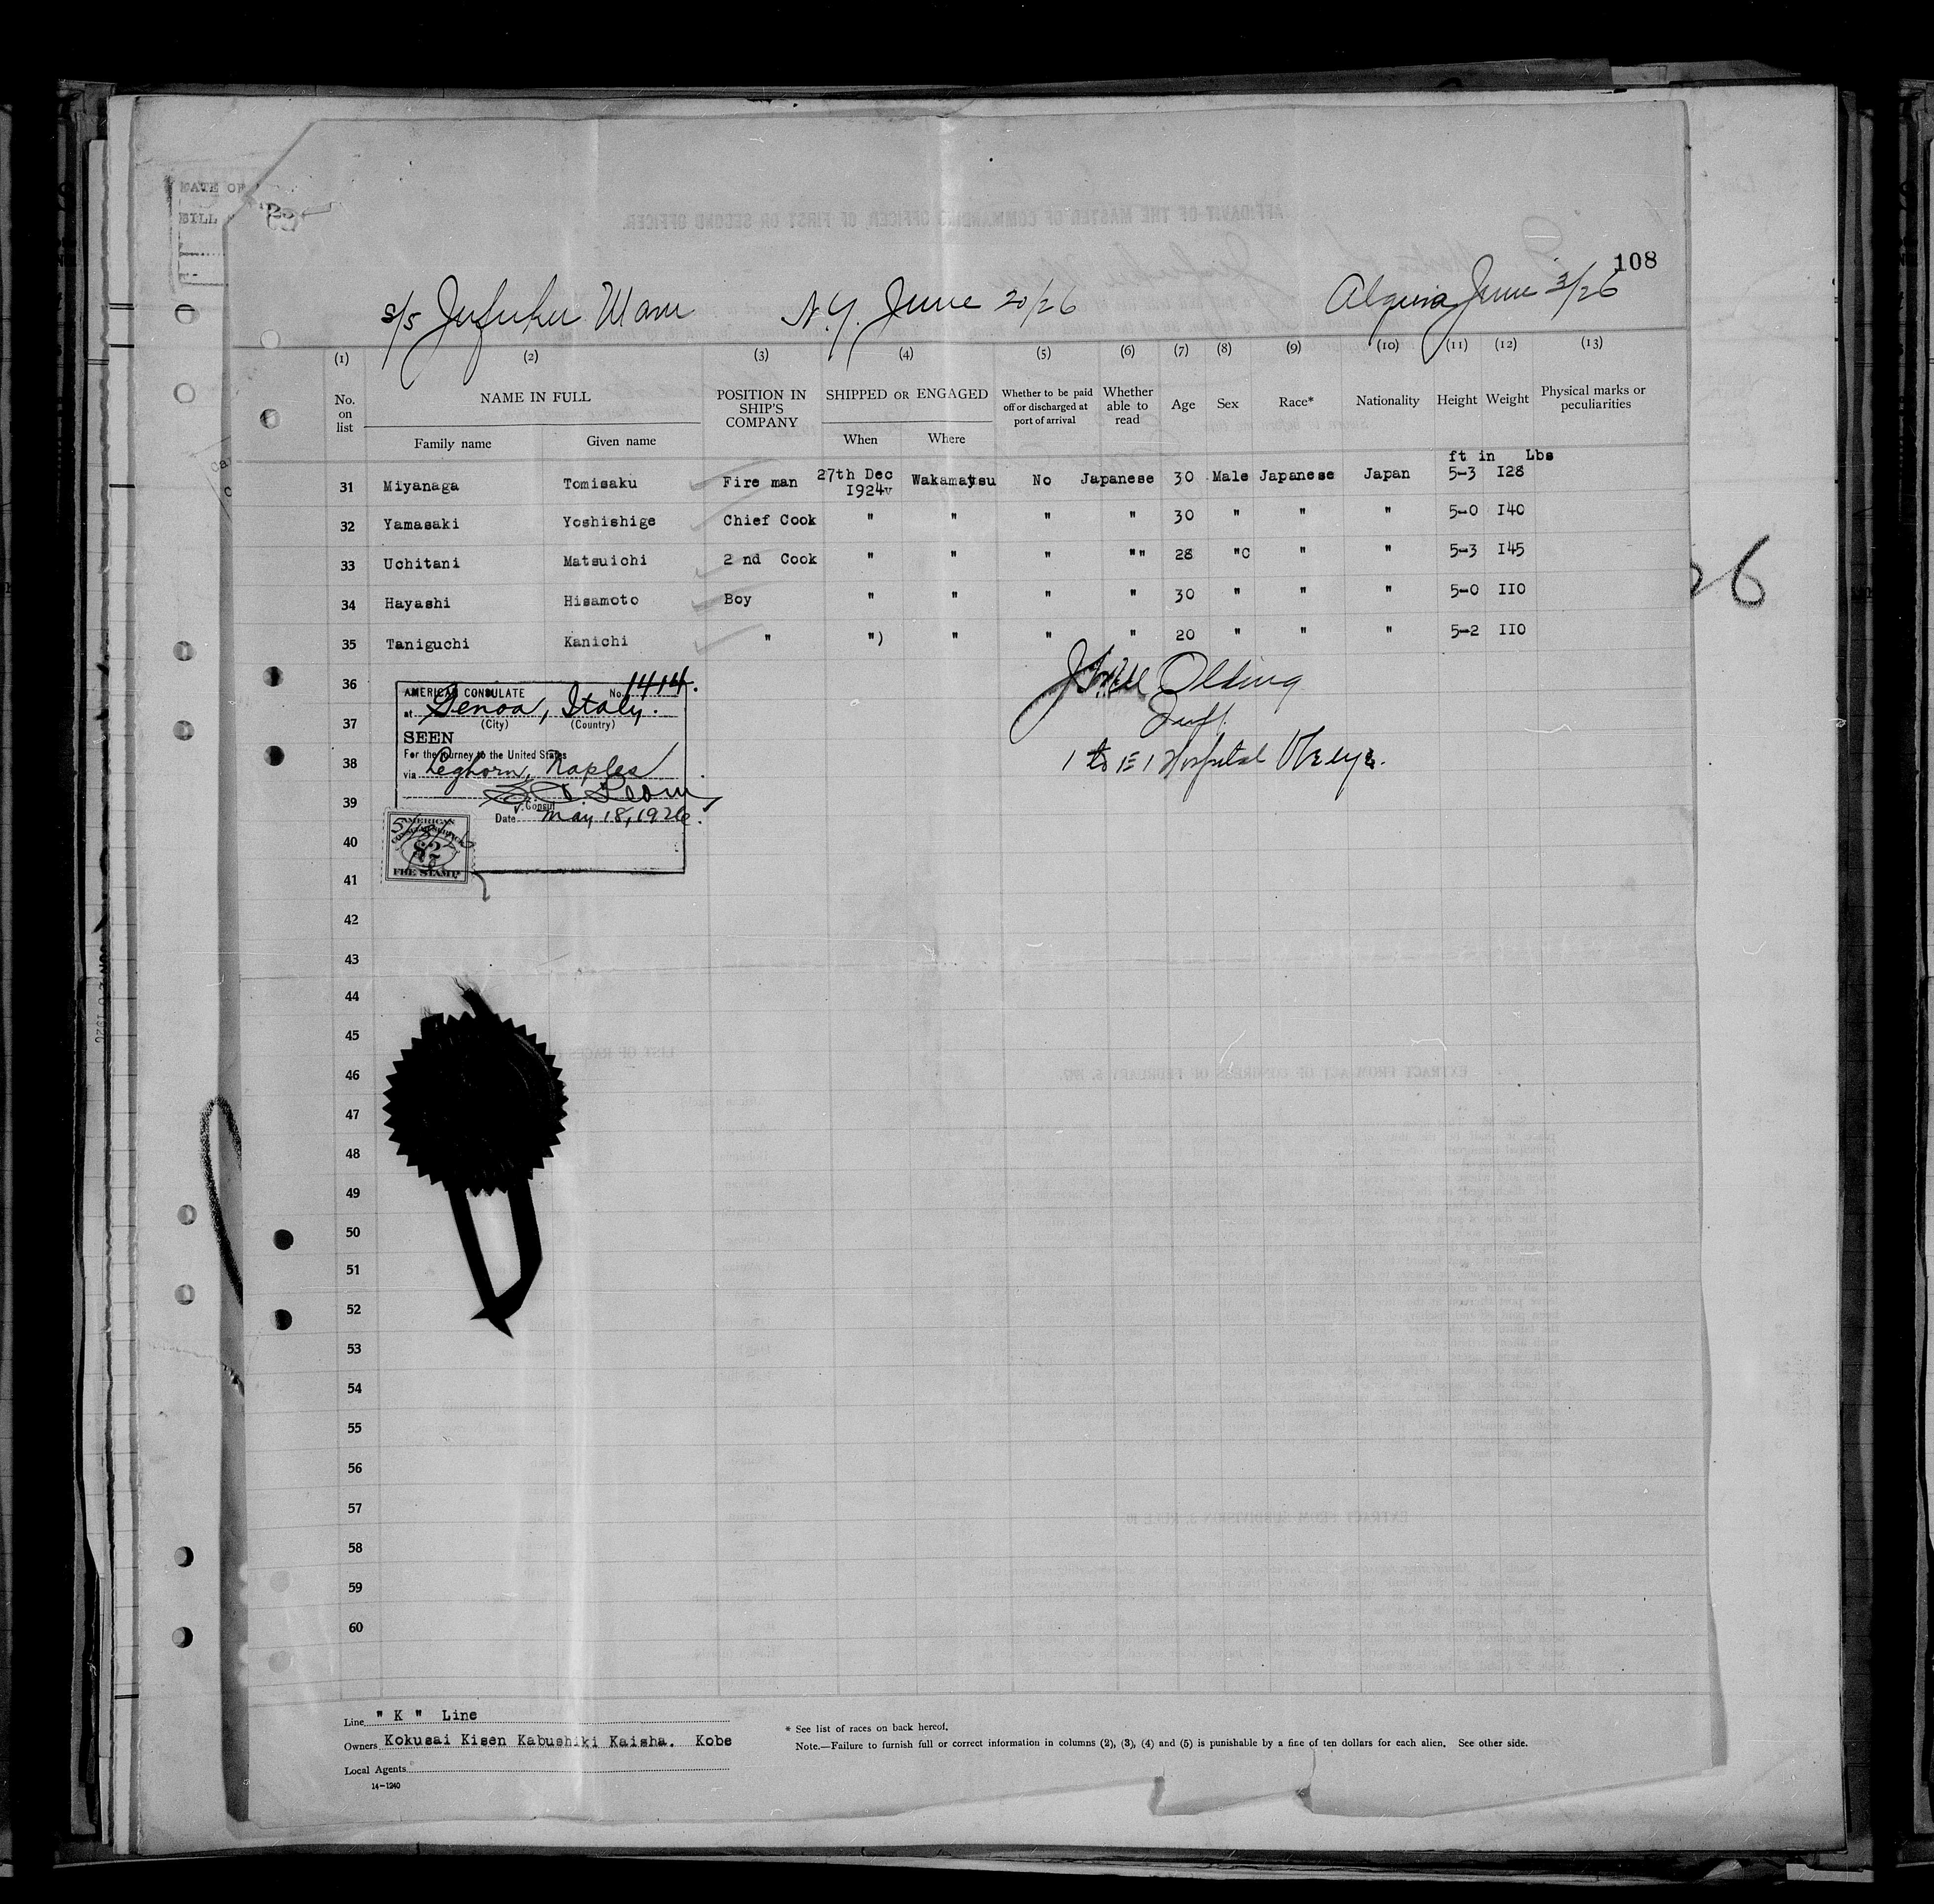 108
S/S Jufuku Maru N.Y. June 20/26 June 3/26
(1) (2) (3) (4) (5) (6) (7) (8) (9) (10) (11) (12) (13)
No. on list NAME IN FULL POSITION IN SHIP'S COMPANY SHIPPED OR ENGAGED Whether to be paid off or discharged at port of arrival Whether able to read Age Sex Race* Nationality Height Weight Physical marks or peculiarities
Family name Given name When Where
ft in Lbs
31 Miyanaga Tomisaku Fire man 27th Dec 1924v Wakamatsu No Japanese 30 Male Japanese Japan 5-3 I28
32 Yamasaki Yoshishige Chief Cook " " " " 30 " " " 5-0 I40
33 Uchitani Matsuichi 2 nd Cook " " " "" 28 "C " " 5-3 I45
34 Hayashi Hisamoto Boy " " " " 30 " " " 5-0 II0
35 Taniguchi Kanichi " ") " " " 20 " " " 5-2 II0
36
37
38
39
40
41
42
43
44
45
46
47
48
49
50
51
52
53
54
55
56
57
58
59
60
AMERICAN CONSULATE No. 1414.
at Genoa, Italy.
(City) (Country)
SEEN
For the journey to the United States
via Leghorn, Naples
V. Consul
Date May 18, 1926.
AMERICAN
$2
FEE STAMP
Olding
Hospital
26
Line " K " Line
Owners Kokusai Kisen Kabushiki Kaisha. Kobe
Local Agents
14-1240
* See list of races on back hereof.
Note.—Failure to furnish full or correct information in columns (2), (3), (4) and (5) is punishable by a fine of ten dollars for each alien. See other side.